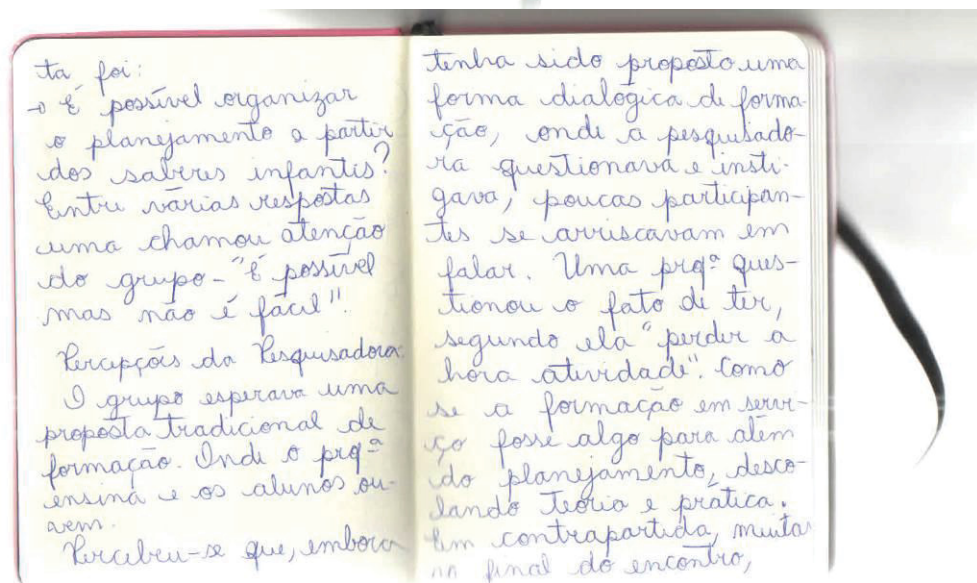 ta foi:
→ É possível organizar
o planejamento a partir
dos saberes infantis?
Entre várias respostas
uma chamou atenção
do grupo - "É possível
mas não é fácil".
Percepções da Pesquisadora:
O grupo esperava uma
proposta tradicional de
formação. Onde o profª
ensina e os alunos ou-
vem.
Percebeu-se que, embora
tenha sido proposto uma
forma dialógica de forma-
ção, onde a pesquisado-
ra questionava e insti-
gava, poucas participan-
tes se arriscavam em
falar. Uma profª ques-
tionou o fato de ter,
segundo ela "perder a
hora atividade". Como
se a formação em servi-
ço fosse algo para além
do planejamento, desco-
lando teoria e prática.
Em contrapartida, muitas
no final do encontro,